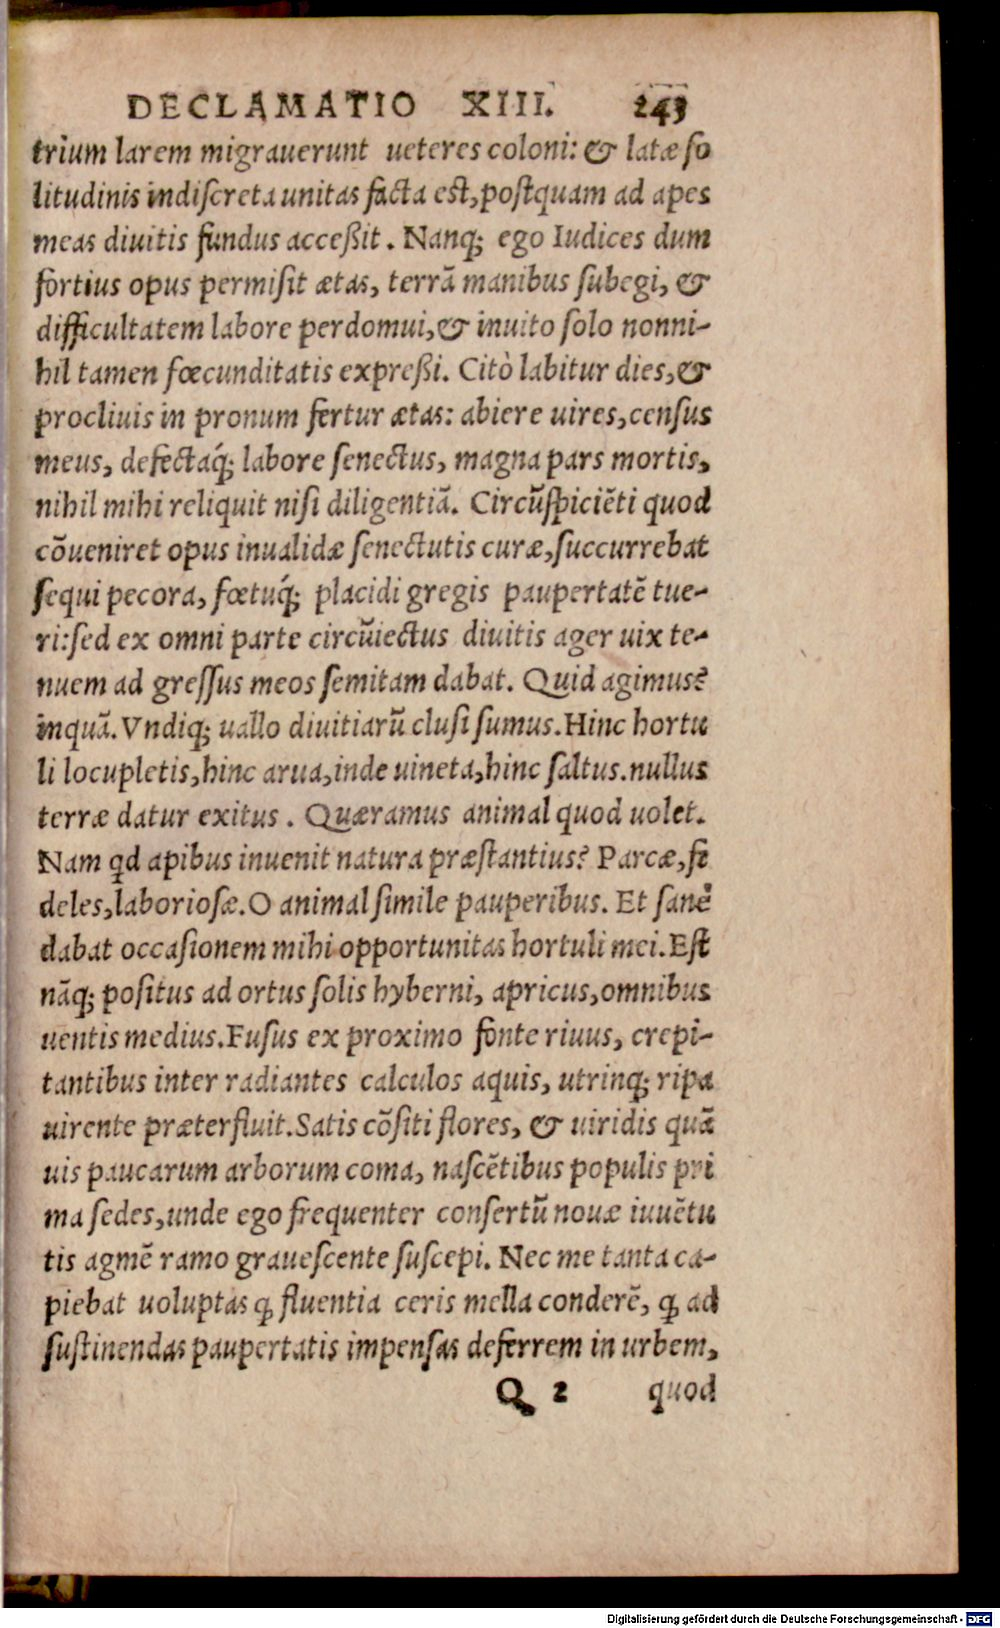 DECLAMATIO XIII. 243
trium larem migrauerunt ueteres coloni: & latæ so
litudinis indiscreta unitas facta est, postquam ad apes
meas diuitis fundus acceßit. Nanq; ego Iudices dum
fortius opus permisit ætas, terrã manibus subegi, &
difficultatem labore perdomui, & inuito solo nonni-
hil tamen fœcunditatis expreßi. Citò labitur dies, &
procliuis in pronum fertur ætas: abiere uires, census
meus, defectaq́; labore senectus, magna pars mortis,
nihil mihi reliquit nisi diligentiã. Circũspiciẽti quod
cõueniret opus inualidæ senectutis curæ, succurrebat
sequi pecora, fœtuq́; placidi gregis paupertatẽ tue-
ri: sed ex omni parte circũiectus diuitis ager uix te-
nuem ad gressus meos semitam dabat. Quid agimus?
inquã. Vndiq; uallo diuitiarũ clusi sumus. Hinc hortu
li locupletis, hinc arua, inde uineta, hinc saltus. nullus
terræ datur exitus. Quæramus animal quod uolet.
Nam qd apibus inuenit natura præstantius? Parcæ, fi
deles, laboriosæ. O animal simile pauperibus. Et sanè
dabat occasionem mihi opportunitas hortuli mei. Est
nãq; positus ad ortus solis hyberni, apricus, omnibus
uentis medius. Fusus ex proximo fonte riuus, crepi-
tantibus inter radiantes calculos aquis, utrinq; ripa
uirente præterfluit. Satis cõsiti flores, & uiridis quã
uis paucarum arborum coma, nascẽtibus populis pri
ma sedes, unde ego frequenter consertũ nouæ iuuẽtu
tis agmẽ ramo grauescente suscepi. Nec me tanta ca-
piebat uoluptas ꝙ fluentia ceris mella conderẽ, ꝙ ad
sustinendas paupertatis impensas deferrem in urbem,
Q 2 quod
Digitalisierung gefördert durch die Deutsche Forschungsgemeinschaft - DFG